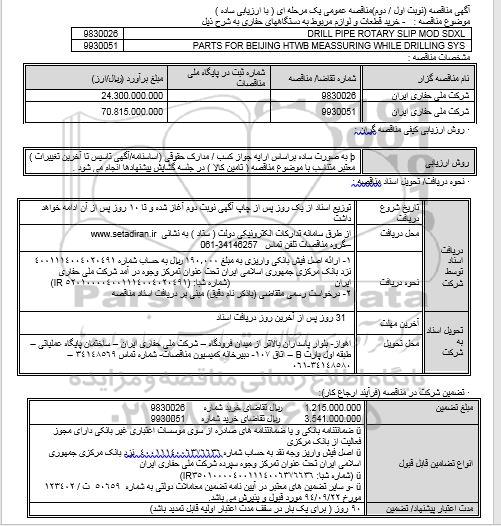 آگهی مناقصه (نوبت اول / دوم)مناقصه عمومی یک مرحله ای ( با ارزیابی ساده )
موضوع مناقصه : - خرید قطعات و لوازم مربوط به دستگاههای حفاری به شرح ذیل
DRILL PIPE ROTARY SLIP MOD SDXL 9830026
PARTS FOR BEIJING HTWB MEASSURING WHILE DRILLING SYS 9930051
مشخصات مناقصه :
نام مناقصه گزار شماره تقاضا/ مناقصه شماره ثبت در پایگاه ملی مناقصات مبلغ برآورد (ریال/ارز)
شرکت ملی حفاری ایران 9830026 24.300.000.000
شرکت ملی حفاری ایران 9930051 70.815.000.000
روش ارزیابی کیفی مناقصه گران:
روش ارزیابی þ به صورت ساده براساس ارایه جواز کسب / مدارک حقوقی (اساسنامه/آگهی تاسیس تا آخرین تغییرات )
معتبر متناسب با موضوع مناقصه ( تامین کالا ) در جلسه گشایش پیشنهادها انجام می شود .
نحوه دریافت/ تحویل اسناد مناقصه:
دریافت اسناد توسط شرکت
تاریخ شروع دریافت توزیع اسناد از یک روز پس از چاپ آگهی نوبت دوم آغاز شده و تا ۱۰ روز پس از آن ادامه خواهد داشت
محل دریافت از طریق سامانه تدارکات الکترونیکی دولت ( ستاد ) به نشانی www.setadiran.ir
–گروه مناقصات تلفن تماس 34146257-061
نحوه دریافت ۱- ارائه اصل فیش بانکی واریزی به مبلغ ۱۹۰,۰۰۰ ریال به حساب شماره ۴۰۰۱۱۱۴۰۰۴۰۲۰۴۹۱
نزد بانک مرکزی جمهوری اسلامی ایران تحت عنوان تمرکز وجوه در آمد شرکت ملی حفاری
ایران (شماره شبا: IR ۵۲۰۱۰۰۰۰۴۰۰۱۱۱۴۰۰۴۰۲۰۴۹۱)
۲- درخواست رسمی متقاضی (باذکر نام دقیق) مبنی بر دریافت اسناد مناقصه
تحویل اسناد به شرکت
آخرین مهلت 31 روز پس از آخرین روز دریافت اسناد
محل تحویل اهواز- بلوار پاسداران بالاتر از میدان فرودگاه – شرکت ملی حفاری ایران – ساختمان پایگاه عملیاتی –
طبقه اول پارت B – اتاق ۱۰۷- دبیرخانه کمیسیون مناقصات- شماره تماس ۳۴۱۴۸۵۶۹ –
۳۴۱۴۸۵۸۰-۰۶۱
تضمین شرکت در مناقصه (فرآیند ارجاع کار):
مبلغ تضمین 1.215.000.000 ریال تقاضای خرید شماره 9830026
3.541.000.000 ریال تقاضای خرید شماره 9930051
انواع تضامین قابل قبول
ü ضمانتنامه بانکی و یا ضمانتنامه های صادره از سوی موسسات اعتباری غیر بانکی دارای مجوز
فعالیت از بانک مرکزی
ü اصل فیش واریز وجه نقد به حساب شماره ۴۰۰۱۱۱۴۰۰۶۳۷۶۶۳۶ نزد بانک مرکزی جمهوری
اسلامی ایران تحت عنوان تمرکز وجوه سپرده شرکت ملی حفاری ایران
ü (شماره شبا:
ü -و سایر تضمین های معتبر در آیین نامه تضمین معاملات دولتی به شماره ۵۰۶۵۹ ت / ۱۲۳۴۰۲
مورخ ۹۴/۰۹/۲۲ مورد قبول و پذیرش می باشد.
مدت اعتبار پیشنهاد/ تضمین ۹۰ روز ( برای یک بار در سقف مدت اعتبار اولیه قابل تمدید باشد)